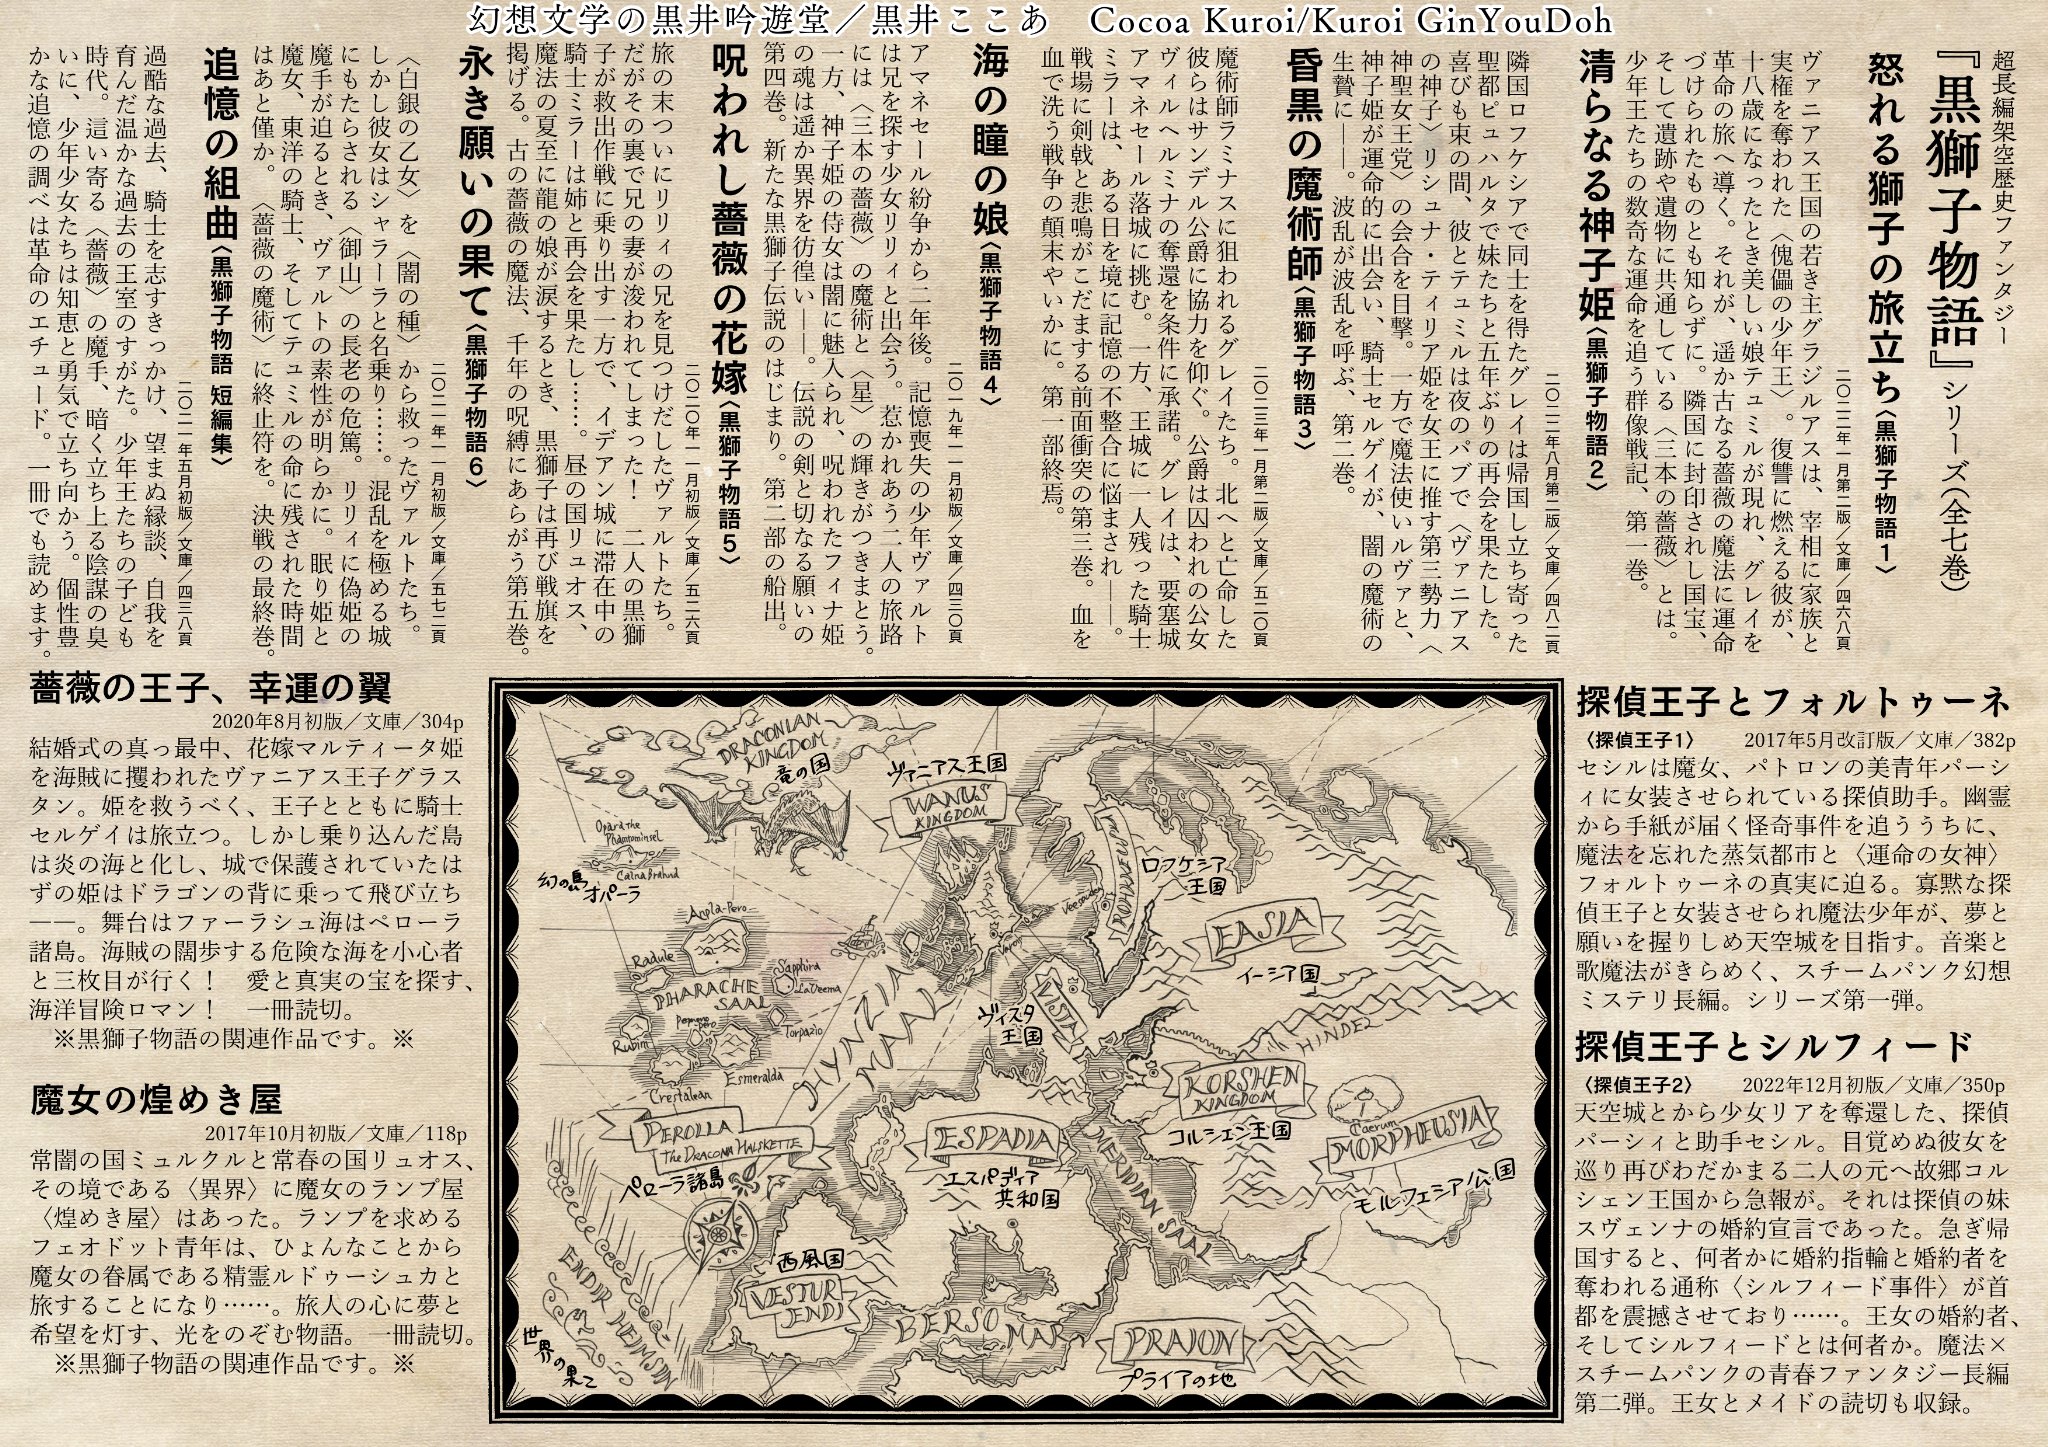 幻想文学の黒井吟遊堂／黒井ここあ　Cocoa Kuroi/Kuroi GinYouDoh
超長編架空歴史ファンタジー
『黒獅子物語』シリーズ(全七巻)
怒れる獅子の旅立ち〈黒獅子物語1〉
二〇二二年一月第二版／文庫／四六八頁
ヴァニアス王国の若き主グラジルアスは、宰相に家族と
実権を奪われた〈傀儡の少年王〉。復讐に燃える彼が、
十八歳になったとき美しい娘テュミルが現れ、グレイを
革命の旅へ導く。それが、遥か古なる薔薇の魔法に運命
づけられたものとも知らずに。隣国に封印されし国宝、
そして遺跡や遺物に共通している〈三本の薔薇〉とは。
少年王たちの数奇な運命を追う群像戦記、第一巻。
清らなる神子姫〈黒獅子物語2〉
二〇二二年八月第二版／文庫／四八二頁
隣国ロフケシアで同士を得たグレイは帰国し立ち寄った
聖都ピュハルタで妹たちと五年ぶりの再会を果たした。
喜びも束の間、彼とテュミルは夜のパブで〈ヴァニアス
の神子〉リシュナ・ティリア姫を女王に推す第三勢力〈
神聖女王党〉の会合を目撃。一方で魔法使いルヴァと、
神子姫が運命的に出会い、騎士セルゲイが、闇の魔術の
生贄に――。波乱が波乱を呼ぶ、第二巻。
昏黒の魔術師〈黒獅子物語3〉
二〇二三年一月第二版／文庫／五二〇頁
魔術師ラミナスに狙われるグレイたち。北へと亡命した
彼らはサンデル公爵に協力を仰ぐ。公爵は囚われの公女
ヴィルヘルミナの奪還を条件に承諾。グレイは、要塞城
アマネセール落城に挑む。一方、王城に一人残った騎士
ミラーは、ある日を境に記憶の不整合に悩まされ――。
戦場に剣戟と悲鳴がこだまする前面衝突の第三巻。血を
血で洗う戦争の顛末やいかに。第一部終焉。
海の瞳の娘〈黒獅子物語4〉
二〇一九年一一月初版／文庫／四三〇頁
アマネセール紛争から二年後。記憶喪失の少年ヴァルト
は兄を探す少女リリィと出会う。惹かれあう二人の旅路
には〈三本の薔薇〉の魔術と〈星〉の輝きがつきまとう。
一方、神子姫の侍女は闇に魅入られ、呪われたフィナ姫
の魂は遥か異界を彷徨い――。伝説の剣と切なる願いの
第四巻。新たな黒獅子伝説のはじまり。第二部の船出。
呪われし薔薇の花嫁〈黒獅子物語5〉
二〇二〇年一一月初版／文庫／五二六頁
旅の末ついにリリィの兄を見つけだしたヴァルトたち。
だがその裏で兄の妻が浚われてしまった！　二人の黒獅
子が救出作戦に乗り出す一方で、イデアン城に滞在中の
騎士ミラーは姉と再会を果たし……。昼の国リュオス、
魔法の夏至に龍の娘が涙するとき、黒獅子は再び戦旗を
掲げる。古の薔薇の魔法、千年の呪縛にあらがう第五巻。
永き願いの果て〈黒獅子物語6〉
二〇二一年一一月初版／文庫／五七二頁
〈白銀の乙女〉を〈闇の種〉から救ったヴァルトたち。
しかし彼女はシャラーラと名乗り……。混乱を極める城
にもたらされる〈御山〉の長老の危篤。リリィに偽姫の
魔手が迫るとき、ヴァルトの素性が明らかに。眠り姫と
魔女、東洋の騎士、そしてテュミルの命に残された時間
はあと僅か。〈薔薇の魔術〉に終止符を。決戦の最終巻。
追憶の組曲〈黒獅子物語 短編集〉
二〇二一年五月初版／文庫／四三八頁
過酷な過去、騎士を志すきっかけ、望まぬ縁談、自我を
育んだ温かな過去の王室のすがた。少年王たちの子ども
時代。這い寄る〈薔薇〉の魔手、暗く立ち上る陰謀の臭
いに、少年少女たちは知恵と勇気で立ち向かう。個性豊
かな追憶の調べは革命のエチュード。一冊でも読めます。
薔薇の王子、幸運の翼
2020年8月初版／文庫／304p
結婚式の真っ最中、花嫁マルティータ姫
を海賊に攫われたヴァニアス王子グラス
タン。姫を救うべく、王子とともに騎士
セルゲイは旅立つ。しかし乗り込んだ島
は炎の海と化し、城で保護されていたは
ずの姫はドラゴンの背に乗って飛び立ち
――。舞台はファーラシュ海はペローラ
諸島。海賊の闊歩する危険な海を小心者
と三枚目が行く！　愛と真実の宝を探す、
海洋冒険ロマン！　一冊読切。
※黒獅子物語の関連作品です。※
魔女の煌めき屋
2017年10月初版／文庫／118p
常闇の国ミュルクルと常春の国リュオス、
その境である〈異界〉に魔女のランプ屋
〈煌めき屋〉はあった。ランプを求める
フェオドット青年は、ひょんなことから
魔女の眷属である精霊ルドゥーシュカと
旅することになり……。旅人の心に夢と
希望を灯す、光をのぞむ物語。一冊読切。
※黒獅子物語の関連作品です。※
DRACONIAN
KINGDOM
竜の国
ヴァニアス王国
WANUS
KINGDOM
Opara the
Phantominsel
幻の島
オパーラ
ロフケシア
王国
Anpla-Pero
Radule
Sapphira
LaVeema
PHARACHE
SAAL
Rubim
Torpazio
Esmeralda
Crestalean
EASIA
イーシア国
VISTA
ヴィスタ
王国
HINDEL
KORSHEN
KINGDOM
コルシェン王国
Caerum
MORPHEUSIA
モルフェシア公国
PEROLLA
The DRACONA HALSKETTE
ペローラ諸島
ESPADIA
エスパディア
共和国
MERIDIAN SAAL
西風国
VESTUR
ENDI
ENDIR HEIMSIN
世界の果て
BERSO MAR
PRAION
プライアの地
探偵王子とフォルトゥーネ
〈探偵王子1〉　2017年5月改訂版／文庫／382p
セシルは魔女、パトロンの美青年パーシ
ィに女装させられている探偵助手。幽霊
から手紙が届く怪奇事件を追ううちに、
魔法を忘れた蒸気都市と〈運命の女神〉
フォルトゥーネの真実に迫る。寡黙な探
偵王子と女装させられ魔法少年が、夢と
願いを握りしめ天空城を目指す。音楽と
歌魔法がきらめく、スチームパンク幻想
ミステリ長編。シリーズ第一弾。
探偵王子とシルフィード
〈探偵王子2〉　2022年12月初版／文庫／350p
天空城とから少女リアを奪還した、探偵
パーシィと助手セシル。目覚めぬ彼女を
巡り再びわだかまる二人の元へ故郷コル
シェン王国から急報が。それは探偵の妹
スヴェンナの婚約宣言であった。急ぎ帰
国すると、何者かに婚約指輪と婚約者を
奪われる通称〈シルフィード事件〉が首
都を震撼させており……。王女の婚約者、
そしてシルフィードとは何者か。魔法×
スチームパンクの青春ファンタジー長編
第二弾。王女とメイドの読切も収録。